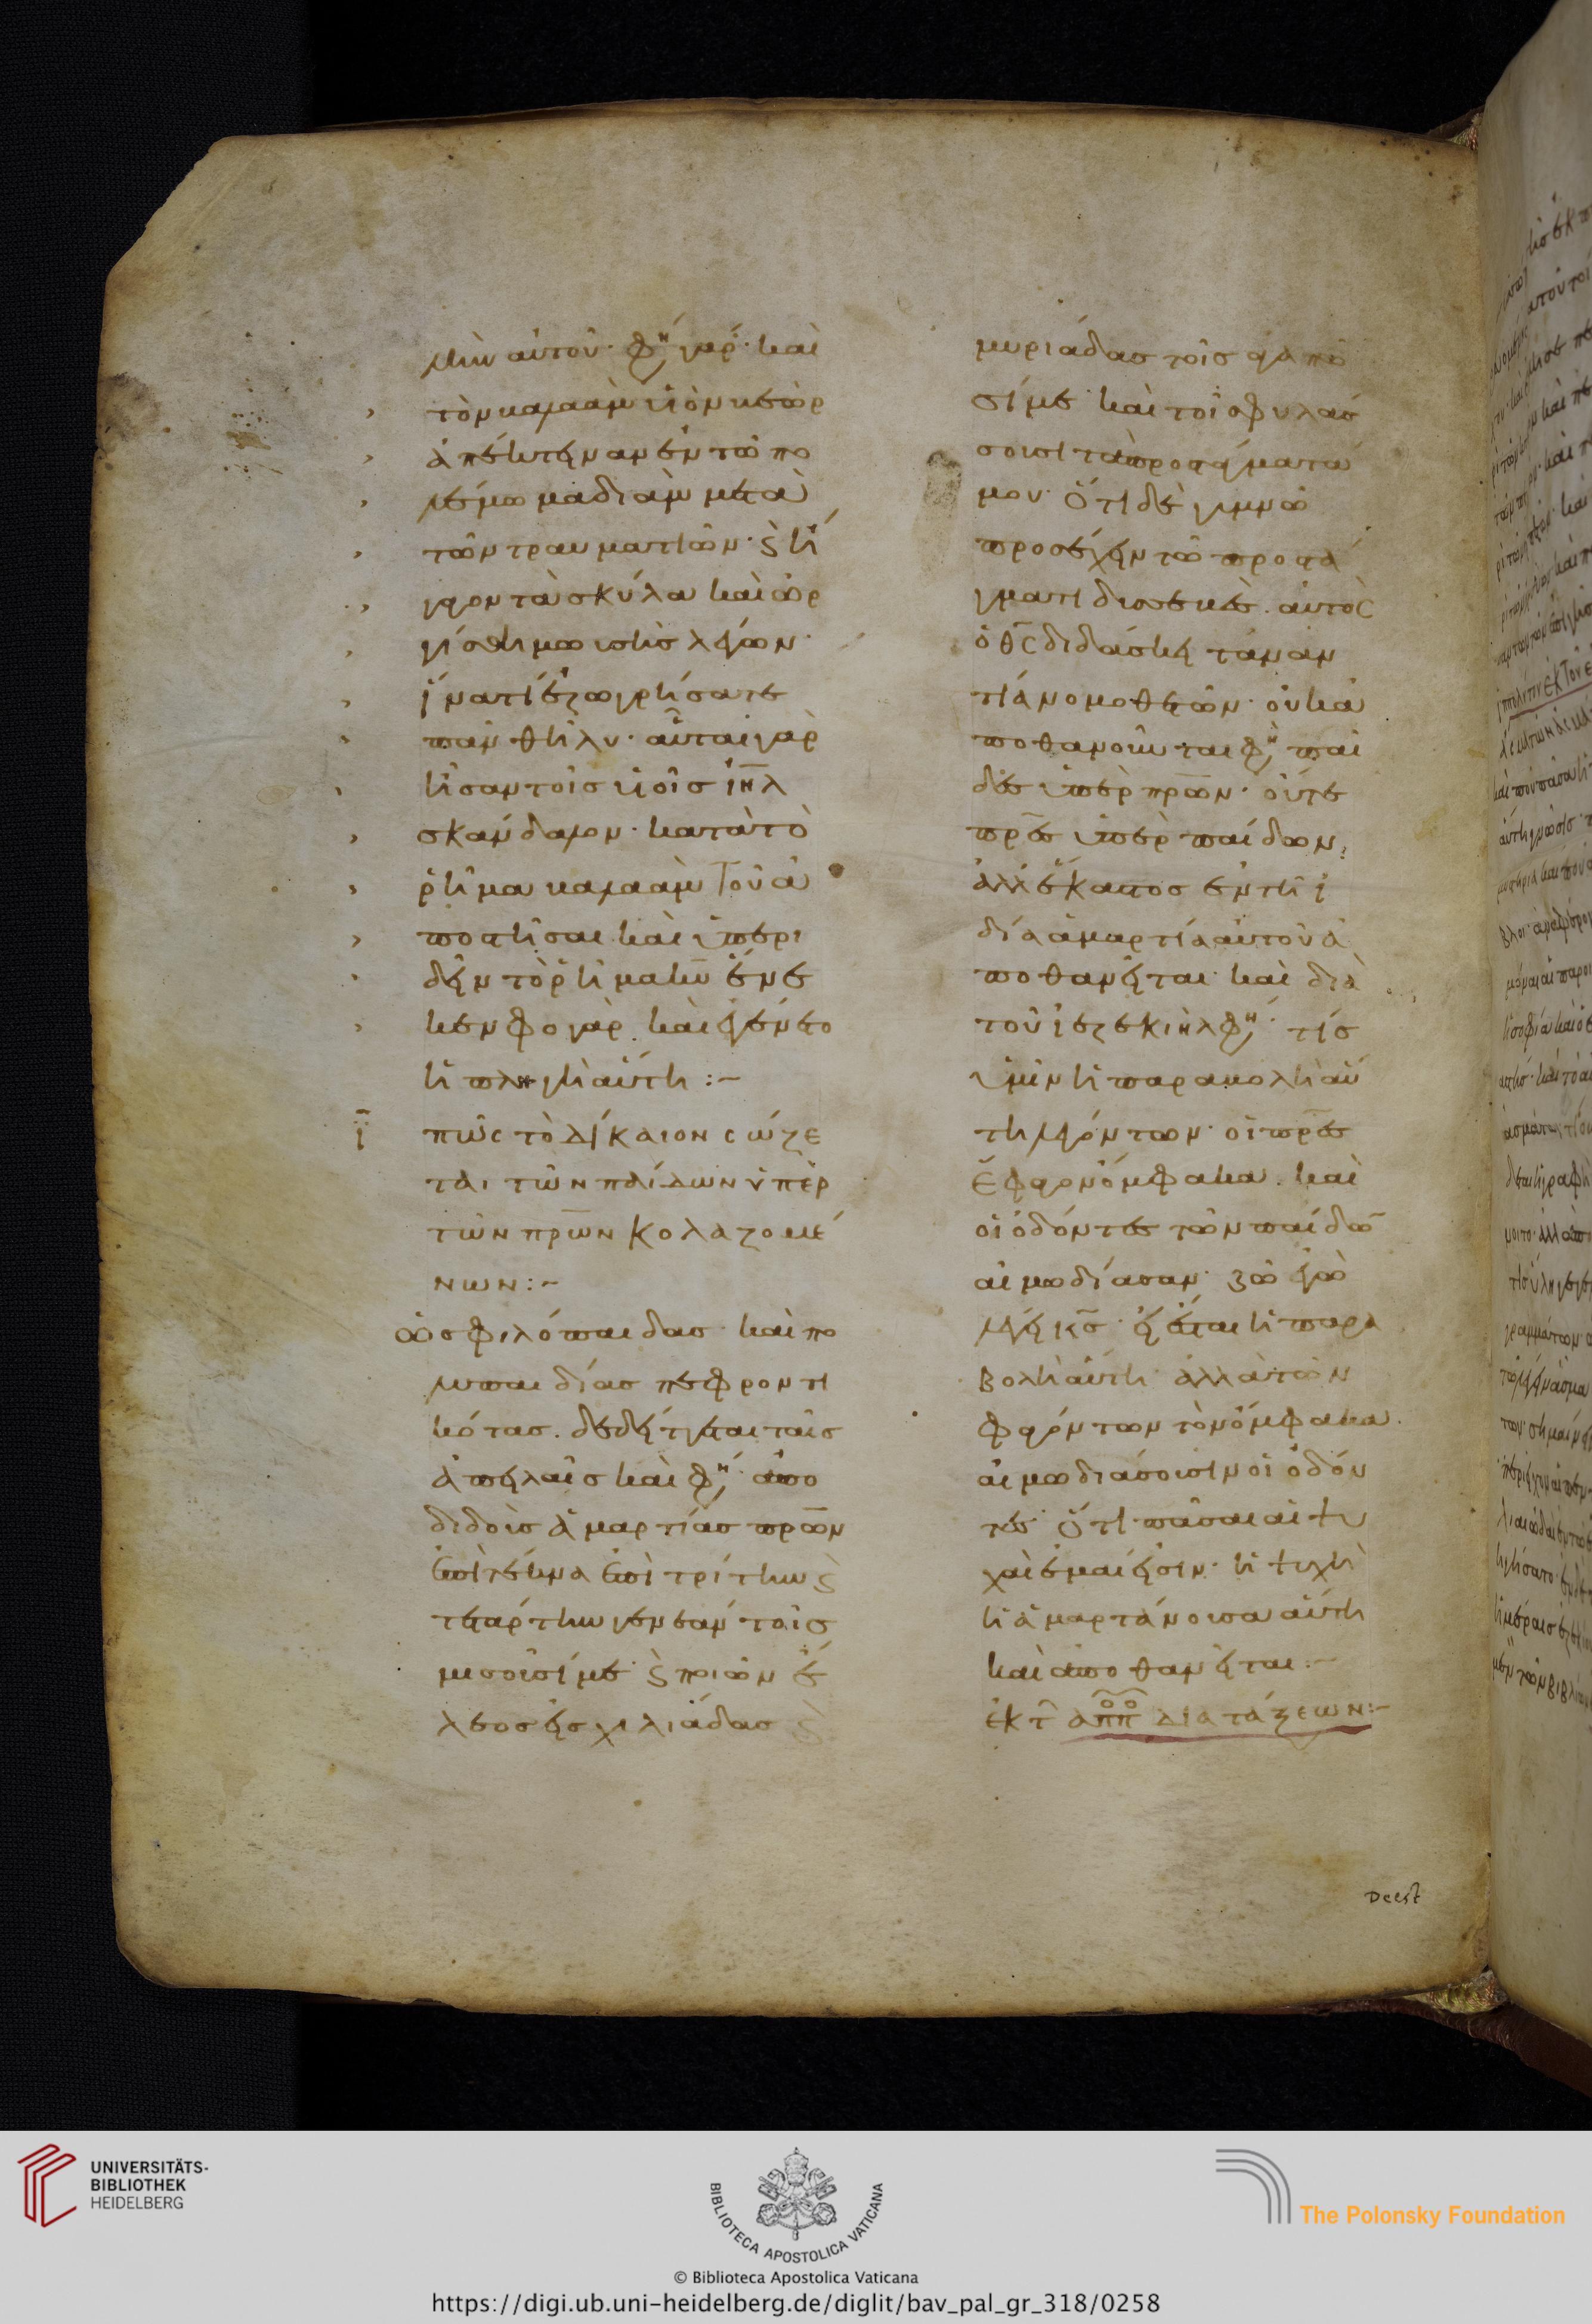 λὴν αὐτοῦ· φη γάρ· καὶ
τὸν βαλαὰμ υἱὸν βεὼρ
ἀπέκτειναν ἐν τῶ πο
λέμω μαδιὰμ μετὰ
τῶν τραυματιῶν· ϛ ἤ
γαγον τὰ σκύλα καὶ ὠρ
γίσθη μωυσῆς λέγων·
ἵνα τί ἐζωγρήσατε
πᾶν θῆλυ· αὗται γὰρ
ἦσαν τοῖς υἱοῖς ιηλ
σκάνδαλον· κατὰ τὸ
ῥῆμα βαλαὰμ τοῦ ἀ
ποστῆσαι καὶ ὑπερι
δεῖν τὸ ῥῆμα κυ ἕνε
κεν φογὼρ· καὶ ἐγένετο
ἡ πληγὴ αὕτη :–
ι πῶς τὸ δίκαιον σώζε
ται τῶν παίδων ὑπὲρ
τῶν πρων κολαζομέ
νων :–
ὡς φιλόπαιδας καὶ πο
λυπαιδίας πεφροντι
κότας. δεδείτγεται ταῖς
ἀπειλαῖς καὶ φη· ἀπο
διδοὺς ἁμαρτίας πρων
ἐπὶ τέκνα ἐπὶ τρίτην ϛ
τετάρτην γενεὰν τοῖς
μισοῦσί με· ϛ ποιῶν ἔ
λεος εἰς χιλιάδας ϛ
μυριάδας τοῖς ἀγαπῶ
σί με· καὶ τοῖς φυλάσ
σουσι τὰ προστάγματά
μου· ὅτι δὲ γεννῶ
προσέχειν τῶ προστά
γματι διοσεκεὲ. αὐτὸς
ὁ θς διδάσκει τάναν
τία νομοθετῶν· οὐκ ἀ
ποθανοῦνται φη παῖ
δες ὑπὲρ πρων· οὔτε
πρες ὑπὲρ παίδων,
ἀλλ ἕκαστος ἐν τῆ ἰ
δία ἁμαρτία αὐτοῦ ἀ
ποθανεῖται· καὶ διὰ
τοῦ ἰεζεκιηλ φη· τίς
ὑμῖν ἡ παραβολὴ αὕ
τη λεγόντων· οἱ πρες
ἔφαγον ὄμφακα. καὶ
οἱ ὀδόντες τῶν παίδω
αἱμωδίασαν· ζῶ ἐγὼ
λέγει κς· εἰ ἔσται ἡ παρα
βολὴ αὕτη· ἀλλὰ τῶν
φαγόντων τὸν ὄμφακα.
αἱμωδιάσουσιν οἱ ὀδόν
τες· ὅτι πᾶσαι αἱ ψυ
χαὶ ἐμαί εἰσιν· ἡ ψυχὴ
ἡ ἁμαρτάνουσα αὕτη
καὶ ἀποθανεῖται :–
ἐκ τ αππ διατάξεων :–
Deest
UNIVERSITÄTS-
BIBLIOTHEK
HEIDELBERG
BIBLIOTECA APOSTOLICA VATICANA
The Polonsky Foundation
© Biblioteca Apostolica Vaticana
https://digi.ub.uni-heidelberg.de/diglit/bav_pal_gr_318/0258